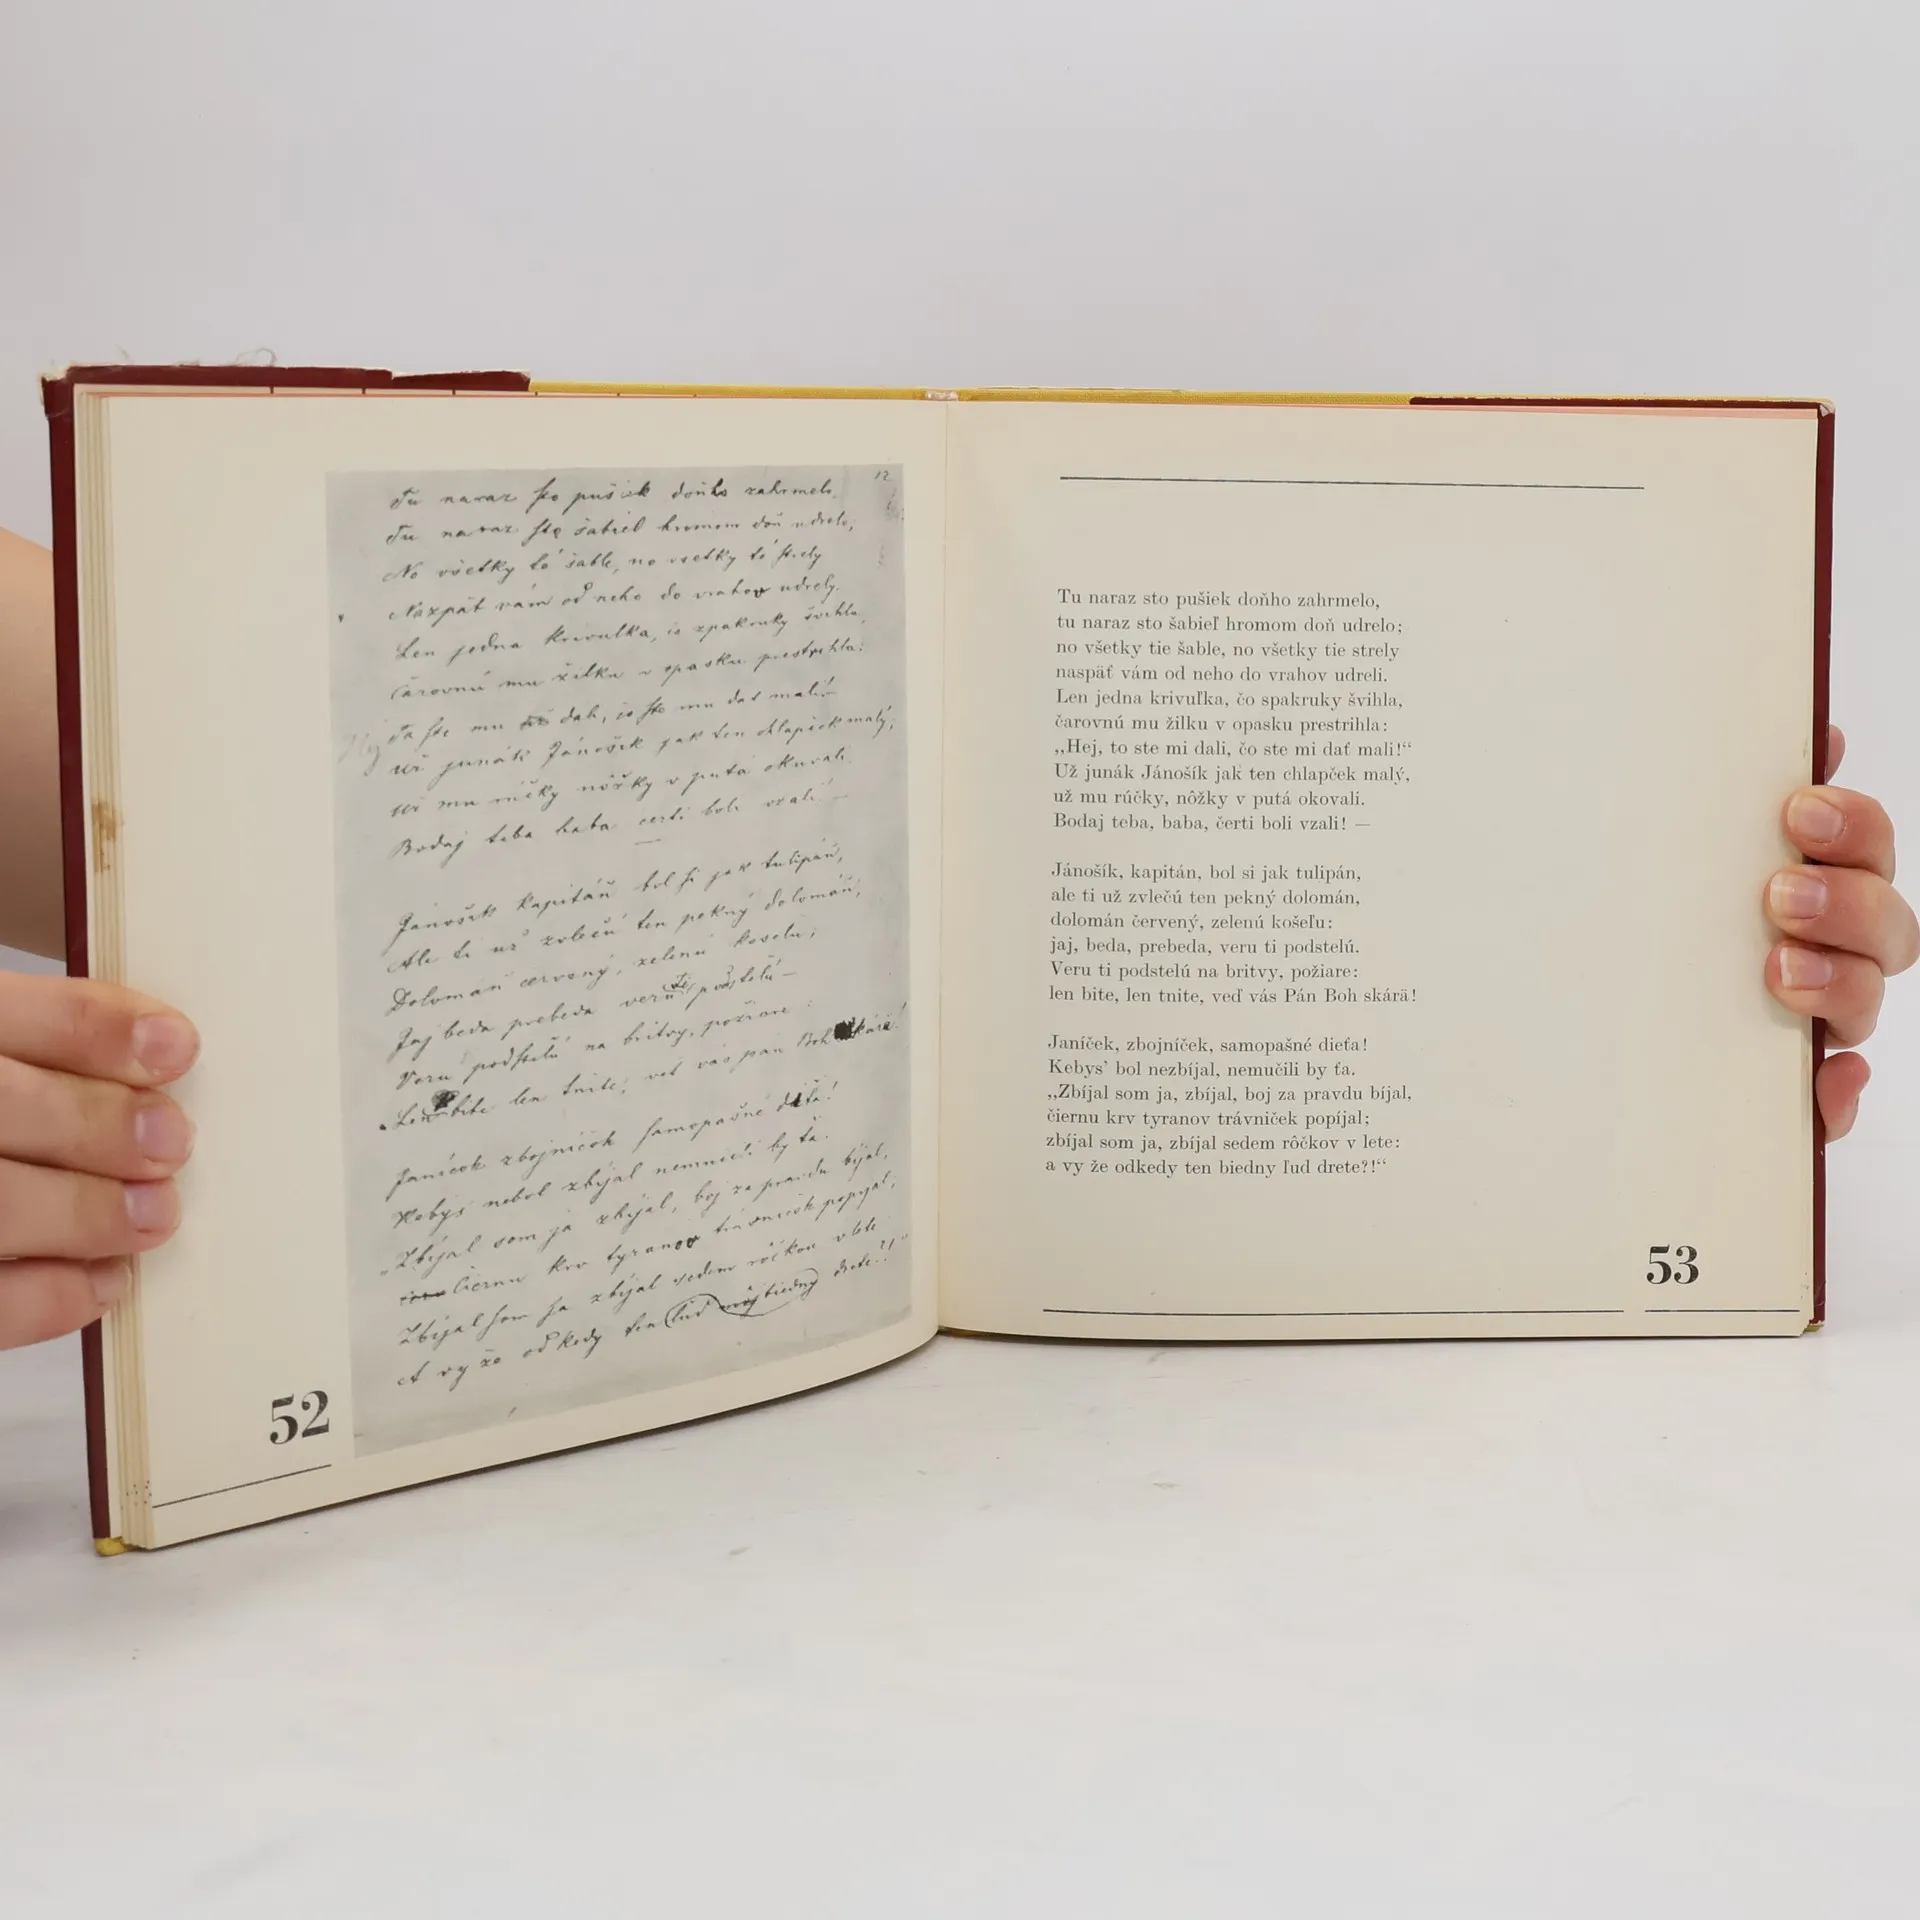 12
Tu naraz sto pušiek doňho zahrmelo,
Tu naraz sto šabiel hromom doň udrelo;
No všetky té šable, no vsetky té strely
Nazpät vám od neho do vrahov udrely.
Len jedna krivulka, čo zpakruky švihla,
Čarovnú mu žilku v opasku prestrihla:
To ste mu dali, čo ste mu dat mali!
Už junák Jánošik jak ten chlapček malý,
Už mu rúčky nôžky v puta okovali.
Bodaj teba baba čerti boli vzali! —
Jánošik kapitáň bol si jak tulipáň,
Ale ti už zvlečú ten pekný dolomáň,
Dolomáň červený, zelenú košelu;
Jaj beda prebeda veru ti podstelú —
Veru podstelú na britvy, požiare:
Len bite len tnite, veď vás pán Boh skára!
Janíčok zbojníčok samopašné dieťa!
Kebys nebol zbíjal nemučili by ťa.
„Zbíjal som ja zbíjal, boj za pravdu bíjal,
čiernu krv tyranov trávničok popíjal;
Zbíjal som ja zbíjal sedem rôčkov v lete
A vy že odkedy ten ľud môj biedny drete?!"
52
Tu naraz sto pušiek doňho zahrmelo,
tu naraz sto šabieľ hromom doň udrelo;
no všetky tie šable, no všetky tie strely
naspäť vám od neho do vrahov udreli.
Len jedna krivuľka, čo spakruky švihla,
čarovnú mu žilku v opasku prestrihla:
„Hej, to ste mi dali, čo ste mi dať mali!“
Už junák Jánošík jak ten chlapček malý,
už mu rúčky, nôžky v putá okovali.
Bodaj teba, baba, čerti boli vzali! —
Jánošík, kapitán, bol si jak tulipán,
ale ti už zvlečú ten pekný dolomán,
dolomán červený, zelenú košeľu:
jaj, beda, prebeda, veru ti podstelú.
Veru ti podstelú na britvy, požiare:
len bite, len tnite, veď vás Pán Boh skárä!
Janíček, zbojníček, samopašné dieťa!
Kebys’ bol nezbíjal, nemučili by ťa.
„Zbíjal som ja, zbíjal, boj za pravdu bíjal,
čiernu krv tyranov trávniček popíjal;
zbíjal som ja, zbíjal sedem rôčkov v lete:
a vy že odkedy ten biedny ľud drete?!“
53